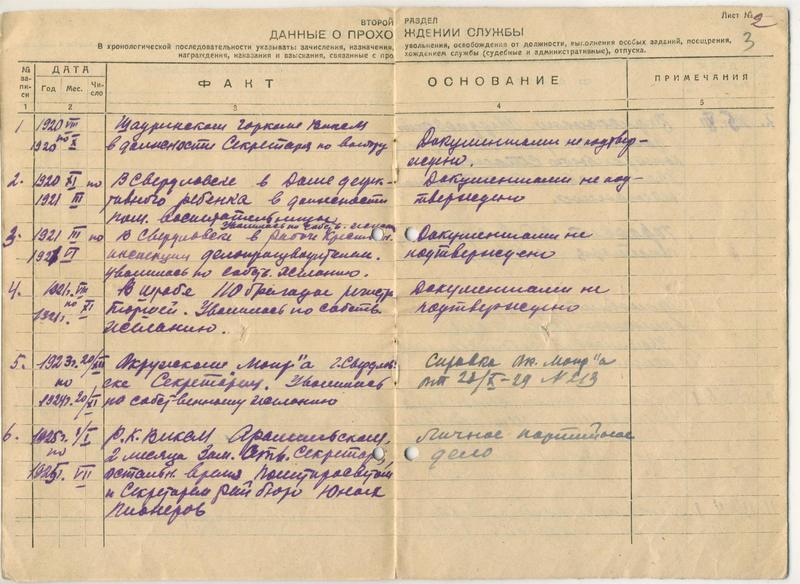 ВТОРОЙ РАЗДЕЛ
Лист № 2
3
ДАННЫЕ О ПРОХОЖДЕНИИ СЛУЖБЫ
В хронологической последовательности указывать: зачисления, назначения, увольнения, освобождения от должности, выполнения особых заданий, поощрения,
награждения, наказания и взыскания, связанные с прохождением службы (судебные и административные), отпуска.
№ записи
ДАТА
Год Мес. Число
ФАКТ
ОСНОВАНИЕ
ПРИМЕЧАНИЯ
1 2 3 4 5
1 1920 VIII по 1920 X
Шадринском горкоме
в должности Секретаря по
Документами не подтверждено.
2. 1920 XI по 1921 III
В Свердловске в Доме дефективного ребенка в должности
пом. воспитательницы
Уволилась по собств. желан.
Документами не подтверждено
3. 1921 III по VI
В Свердловске в Рабоче Крестьян.
инспекции делопроизводителем.
уволилась по собств. желанию.
Документами не подтверждено
4. 1921г. VIII по 1921г. XI
В штабе 110 бригады
Уволилась по собств.
желанию.
Документами не подтверждено
5. 1923г. 20/XII по 1924г. 20/XI
Окружкоме Мопр"а г. Свердловске Секретарем. Уволилась
по собственному желанию
Справка Мопр"а
от 28/X-29 № 213
6. 1925г. I по 1925г. VII
Р.К.В.Л.К.С.М Арамильском,
2 месяца Зам. Отв. Секретаря,
остальн. время Политпросветом
и Секретарем рай бюро Юных
Пионеров
личное партийное
дело